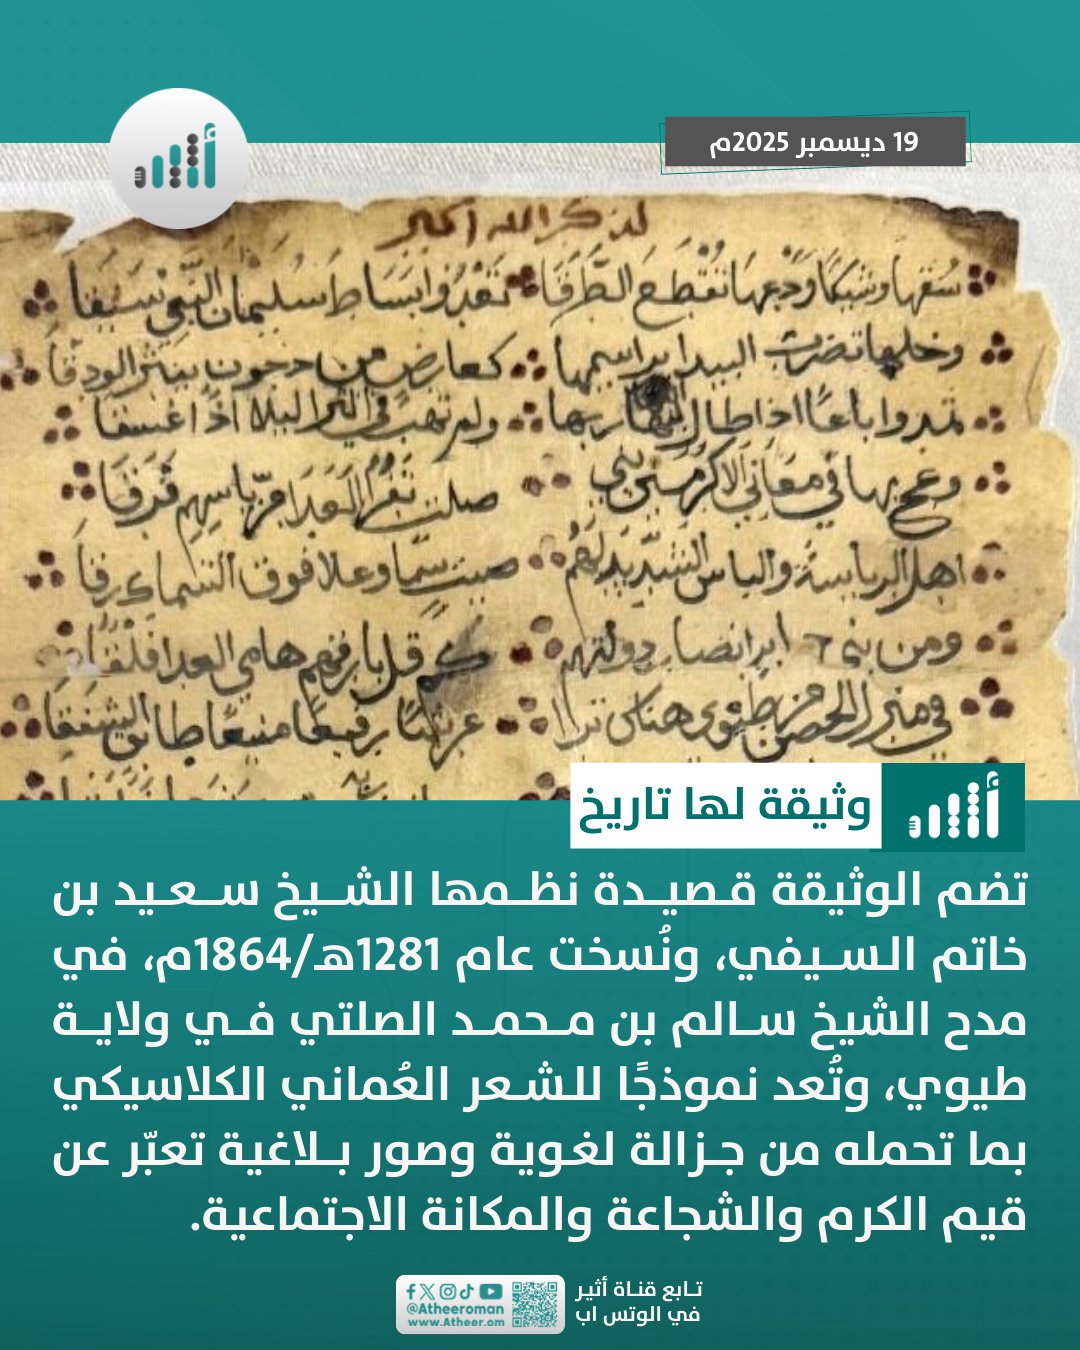 19 ديسمبر 2025م
أثير
لذكر الله أكبر
سُقها وشيكًا ودعها تقطع الطرقا تغدوا بساط سليمان النبي
وخلها تضرب البيدا كعارض من دجون ينثر الودقا
اذا طال ولم تهب في
وعج بها في معاني الاكرمين بني صلت
اهل الرياسة والباس الشديد لهم صيت سما وعلا فوق السماء رقا
ومن بني دولتهم كم قل بارقهم هامي العدا فلقا
في منزل الحصن من طيوي هناك ترا عرينا رفيعا منيعا طابق الشفقا
وثيقة لها تاريخ
أثير
تضم الوثيقة قصيدة نظمها الشيخ سعيد بن
خاتم السيفي، ونُسخت عام 1281هـ/1864م، في
مدح الشيخ سالم بن محمد الصلتي في ولاية
طيوي، وتُعد نموذجًا للشعر العُماني الكلاسيكي
بما تحمله من جزالة لغوية وصور بلاغية تعبّر عن
قيم الكرم والشجاعة والمكانة الاجتماعية.
تابع قناة أثير
في الوتس اب
@Atheeroman
www.Atheer.om